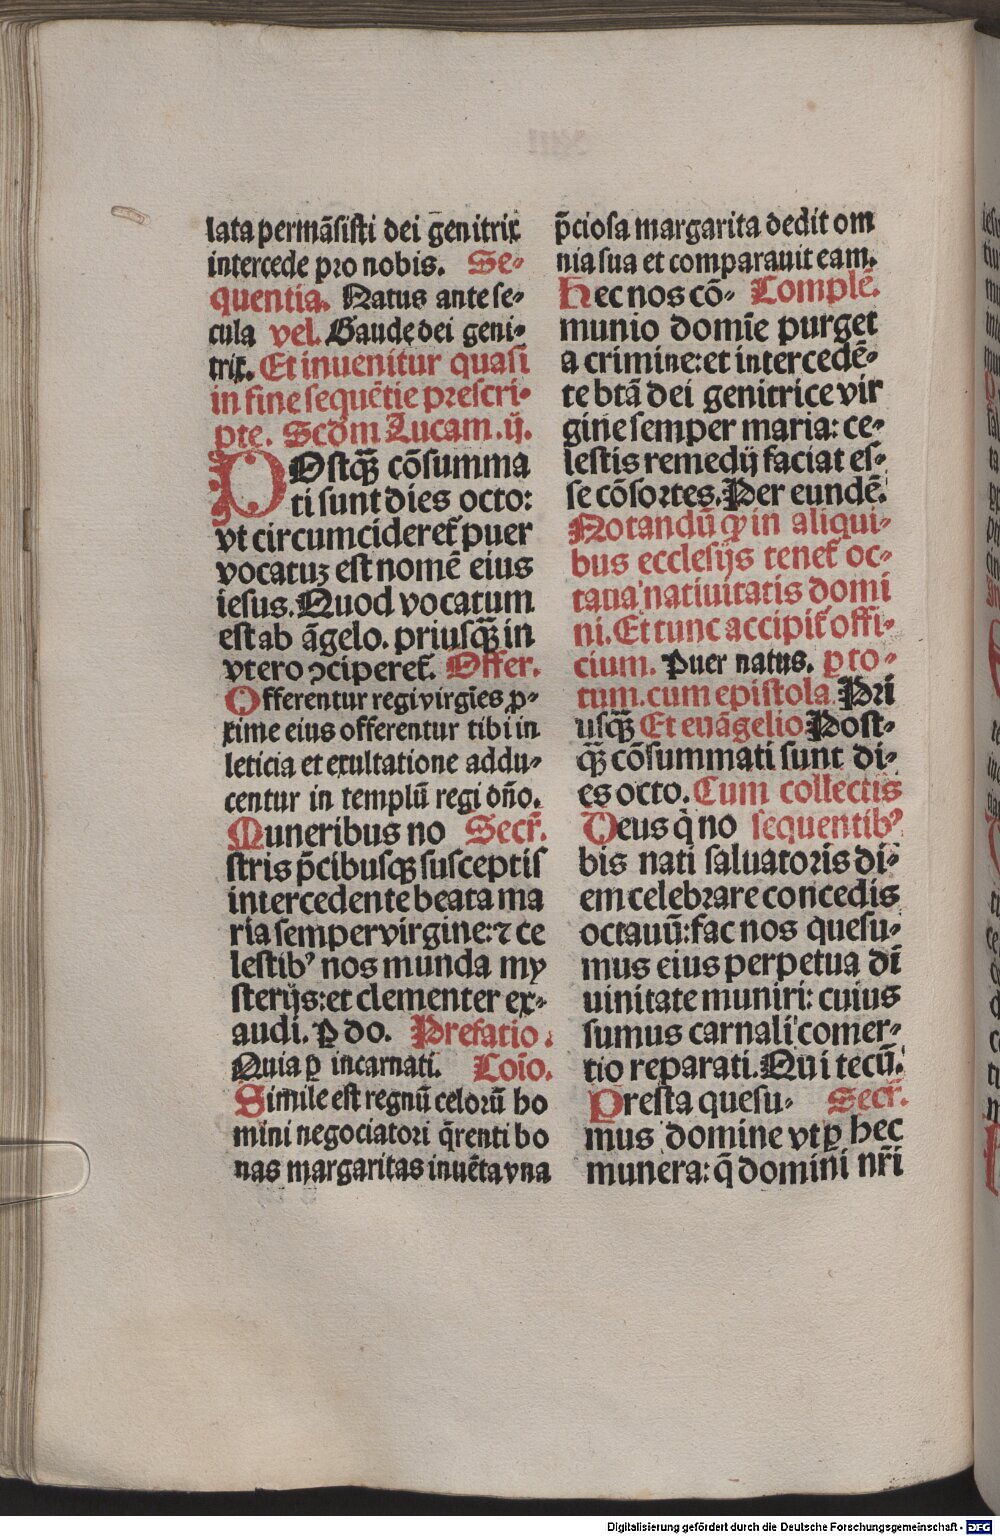 lata permãsisti dei genitrix
intercede pro nobis. Se-
quentia. Natus ante se-
cula vel. Gaude dei geni-
trix. Et inuenitur quasi
in fine sequẽtie prescri-
pte. Scd̃m Lucam .ij.
POstqȝ̃ cõsumma
ti sunt dies octo:
vt circumcideret᷑ puer
vocatuȝ est nomẽ eius
iesus. Quod vocatum
est ab ãgelo. priusqȝ̃ in
vtero ꝯciperet᷑. Offer.
Offerentur regi virgĩes ꝓ-
xime eius offerentur tibi in
leticia et exultatione addu-
centur in templũ regi dño.
Muneribus no Secr̃.
stris p̃cibusqȝ susceptis
intercedente beata ma
ria semper virgine: ⁊ ce
lestibꝰ nos munda my
sterijs: et clementer ex-
audi. ꝑ do. Prefatio.
Quia ꝑ incarnati. Coĩo.
Simile est regnũ celorũ ho
mini negociatori q̃renti bo
nas margaritas inuẽta vna
p̃ciosa margarita dedit om
nia sua et comparauit eam.
Hec nos cõ- Complẽ.
munio domĩe purget
a crimine: et intercedẽ-
te btã dei genitrice vir
gine semper maria: ce-
lestis remedij faciat es-
se cõsortes. Per eundẽ.
Notandũ ꝙ in aliqui-
bus ecclesijs tenet᷑ oc-
taua natiuitatis domi
ni. Et tunc accipit᷑ offi-
cium. Puer natus. ꝑ to-
tum. cum epistola Pri
usqȝ̃ Et euãgelio Post-
qȝ̃ cõsummati sunt di-
es octo. Cum collectis
Deus q̇ no sequentibꝰ
bis nati saluatoris di-
em celebrare concedis
octauũ: fac nos quesu-
mus eius perpetua di
uinitate muniri: cuius
sumus carnali comer-
tio reparati. Qui tecũ.
Presta quesu- Secr̃.
mus domine vt ꝑ hec
munera: q̃ domini nr̃i
Digitalisierung gefördert durch die Deutsche Forschungsgemeinschaft - DFG